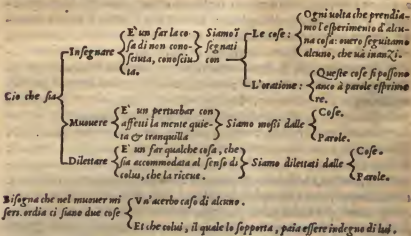 Ciò che sia
Insegnare
E' un far la co
sa di non cono-
sciuta, conosciu
ta.
Siamo ī
segnati
con
Le cose:
Ogni volta che prendia-
mo l'esperimento d'alcu-
na cosa: ouero seguitamo
alcuno, che uà inanzi.
L'oratione:
Queste cose si possono
anco à parole esprime
re.
Muouere
E' un perturbar con
affetti la mente quie-
ta & tranquilla
Siamo mossi dalle
Cose.
Parole.
Dilettare
E' un far qualche cosa, che
sia accommodata al senso di
colui, che la riceue.
Siamo dilettati dalle
Cose.
Parole.
Bisogna che nel muouer mi
seri.ordia ci siano due cose
Vn'acerbo caso di alcuno.
Et che colui, il quale lo sopporta, paia essere indegno di lui.